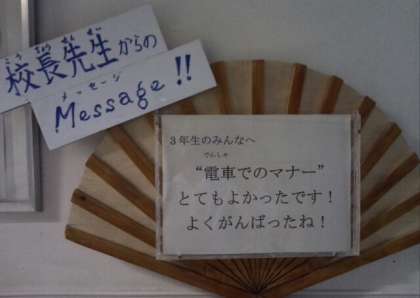 こうちょうせんせい
校長先生からの
メッセージ
Message!!
3年生のみんなへ
でんしゃ
“電車でのマナー”
とてもよかったです！
よくがんばったね！